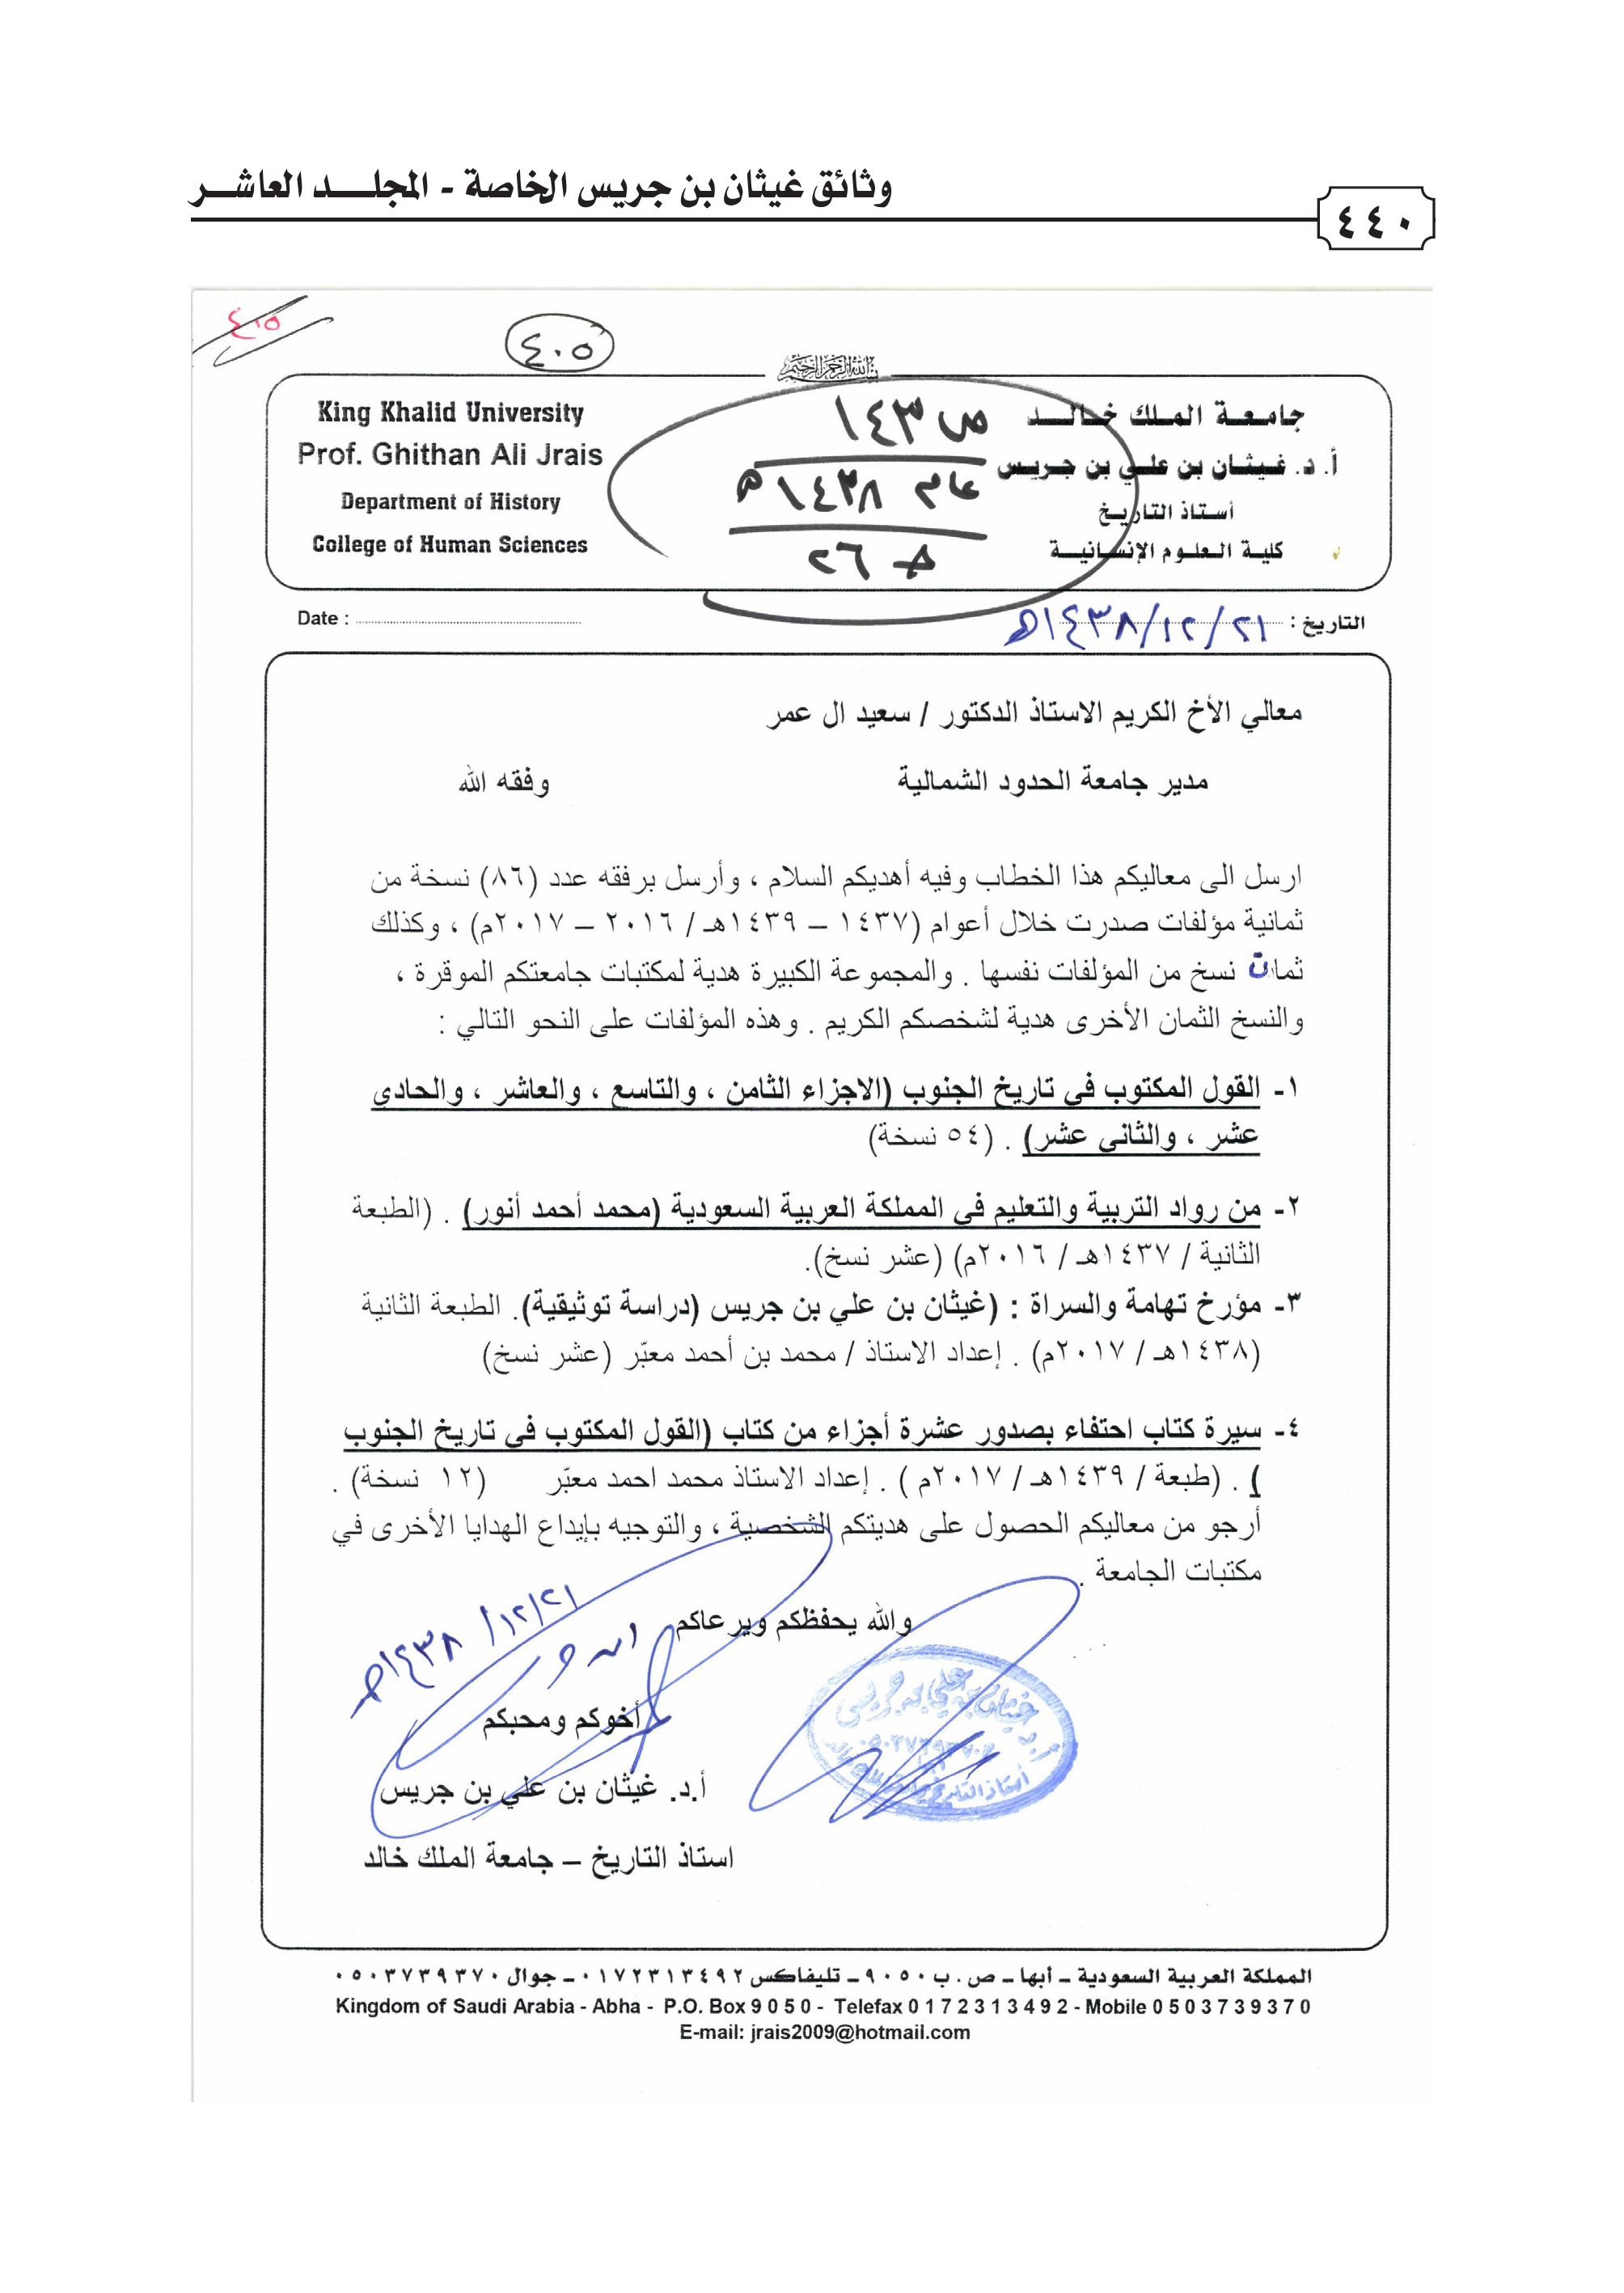 وثائق غيثان بن جريس الخاصة - المجلد العاشر
٤٤٠
٤٠٥
٤٠٥
بسم الله الرحمن الرحيم
King Khalid University
Prof. Ghithan Ali Jrais
Department of History
College of Human Sciences
ص ١٤٣
عام ١٤٣٨هـ
٢٦
جامعة الملك خالد
أ. د. غيثان بن علي بن جريس
أستاذ التاريخ
كلية العلوم الإنسانية
Date :
التاريخ : ٢١/١٢/١٤٣٨هـ
معالي الأخ الكريم الاستاذ الدكتور / سعيد ال عمر
مدير جامعة الحدود الشمالية وفقه الله
ارسل الى معاليكم هذا الخطاب وفيه أهديكم السلام ، وأرسل برفقه عدد (٨٦) نسخة من
ثمانية مؤلفات صدرت خلال أعوام (١٤٣٧ – ١٤٣٩هـ / ٢٠١٦ – ٢٠١٧م) ، وكذلك
ثمان نسخ من المؤلفات نفسها . والمجموعة الكبيرة هدية لمكتبات جامعتكم الموقرة ،
والنسخ الثمان الأخرى هدية لشخصكم الكريم . وهذه المؤلفات على النحو التالي :
١- القول المكتوب في تاريخ الجنوب (الاجزاء الثامن ، والتاسع ، والعاشر ، والحادي
عشر ، والثاني عشر) . (٥٤ نسخة)
٢- من رواد التربية والتعليم في المملكة العربية السعودية (محمد أحمد أنور) . (الطبعة
الثانية / ١٤٣٧هـ / ٢٠١٦م) (عشر نسخ).
٣- مؤرخ تهامة والسراة : (غيثان بن علي بن جريس (دراسة توثيقية). الطبعة الثانية
(١٤٣٨هـ / ٢٠١٧م) . إعداد الاستاذ / محمد بن أحمد معبّر (عشر نسخ)
٤- سيرة كتاب احتفاء بصدور عشرة أجزاء من كتاب (القول المكتوب في تاريخ الجنوب
) . (طبعة / ١٤٣٩هـ / ٢٠١٧م ) . إعداد الاستاذ محمد احمد معبّر (١٢ نسخة) .
أرجو من معاليكم الحصول على هديتكم الشخصية ، والتوجيه بإيداع الهدايا الأخرى في
مكتبات الجامعة .
والله يحفظكم ويرعاكم
٢١/١٢/١٤٣٨هـ
أخوكم ومحبكم
غيثان بن علي بن جريس
أ.د. غيثان بن علي بن جريس
استاذ التاريخ – جامعة الملك خالد
المملكة العربية السعودية ـ أبها ـ ص . ب ٩٠٥٠ ـ تليفاكس ٠١٧٢٣١٣٤٩٢ ـ جوال ٠٥٠٣٧٣٩٣٧٠
Kingdom of Saudi Arabia - Abha - P.O. Box 9 0 5 0 - Telefax 0 1 7 2 3 1 3 4 9 2 - Mobile 0 5 0 3 7 3 9 3 7 0
E-mail: jrais2009@hotmail.com